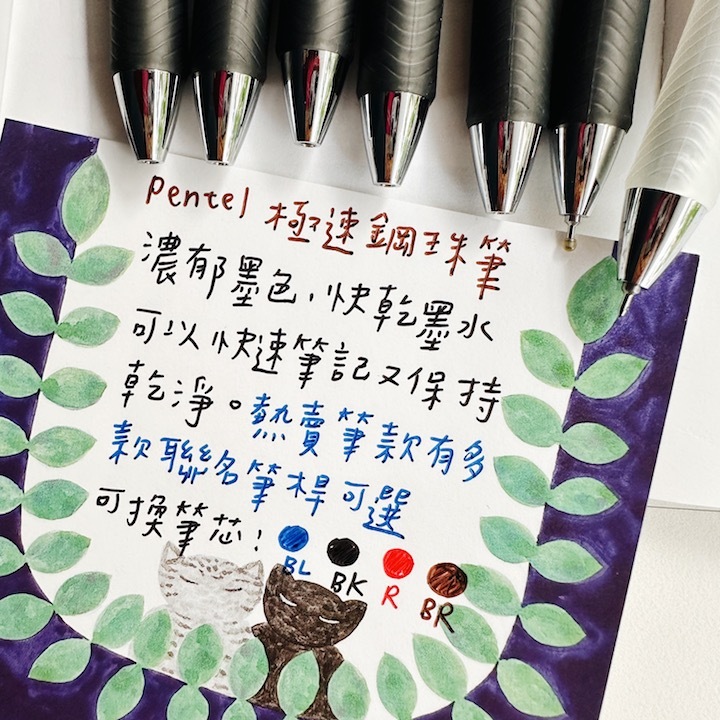 Pentel 極速鋼珠筆
濃郁墨色,快乾墨水
可以快速筆記又保持
乾淨。熱賣筆款有多
款聯名筆桿可選
可換筆芯!
BL BK R BR